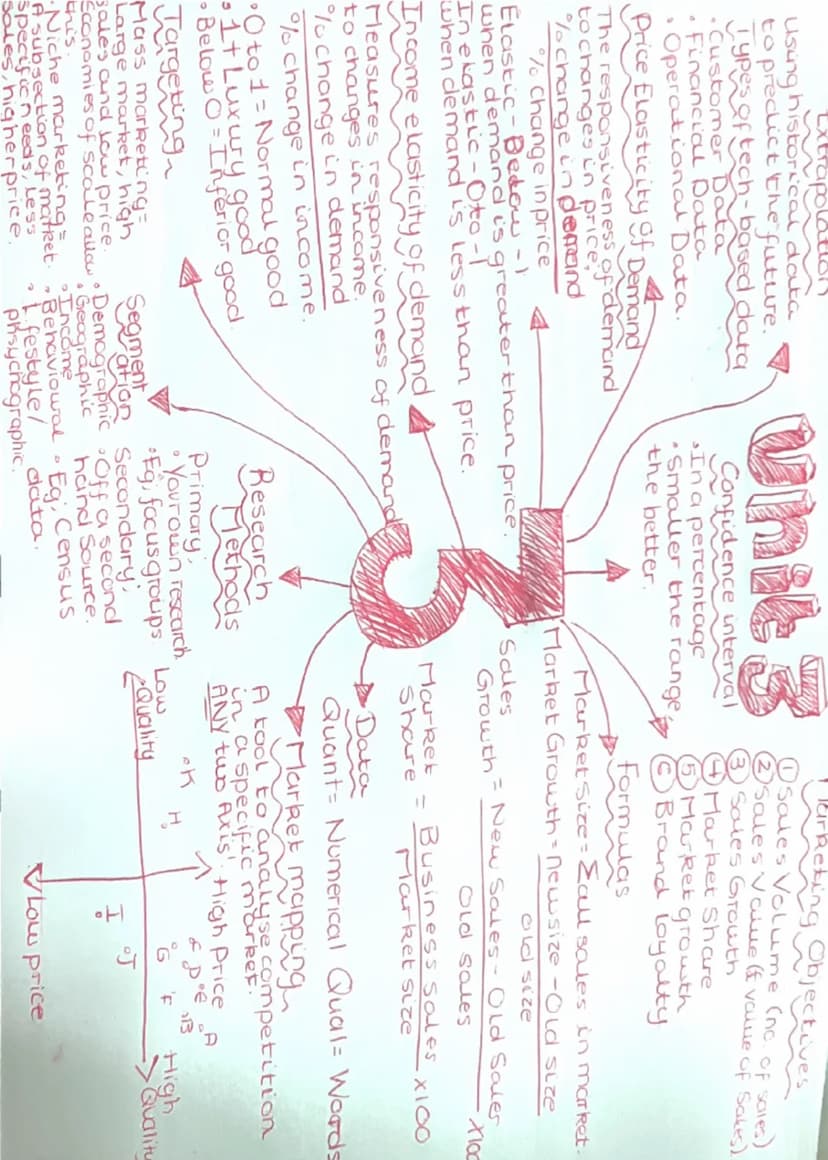 Unit 3
Extrapolation
using historical data
to predict the future.
Types of tech-based data
• Customer Data
• Financial Data
• Operational Data.
Price Elasticity of Demand
The responsiveness of demand
to changes in price.
% change in demand
% change in price
Elastic - Below -1
when demand is greater than price.
Inelastic - 0 to -1
when demand is less than price.
Income elasticity of demand
Measures responsiveness of demand
to changes in income.
% change in demand
% change in income.
• 0 to 1 = Normal good
• 1+ Luxury good
• Below 0 = Inferior good.
Targeting
Mass marketing =
Large market, high
sales and low price.
Economies of scale allow
this.
• Niche marketing =
A subsection of market.
Specific needs, less
sales, higher price.
Segment
ation
• Demographic
• Geographic
• Income
• Behavioural
• Lifestyle/
phsychographic.
Confidence interval
• In a percentage
• Smaller the range,
the better.
Research
Methods
Primary,
• Your own research
• Eg, focus groups
Secondary,
• Off a second
hand source.
• Eg, Census
data.
Marketing Objectives
① Sales Volume (no. of sales)
② Sales Value (£ value of sales)
③ Sales Growth
④ Market Share
⑤ Market growth
⑥ Brand loyalty
Formulas
Market Size = Σ all sales in market.
Market Growth = new size - old size
old size
Sales
Growth = New Sales - Old Sales x100
Old sales
Market
Share = Business Sales x100
Market size
Data
Quant = Numerical Qual = Words
Market mapping
A tool to analyse competition
in a specific market.
ANY two axis! High Price
A
B
D
E
F
G
K
H
J
I
Low
Quality
High
Quality
Low price